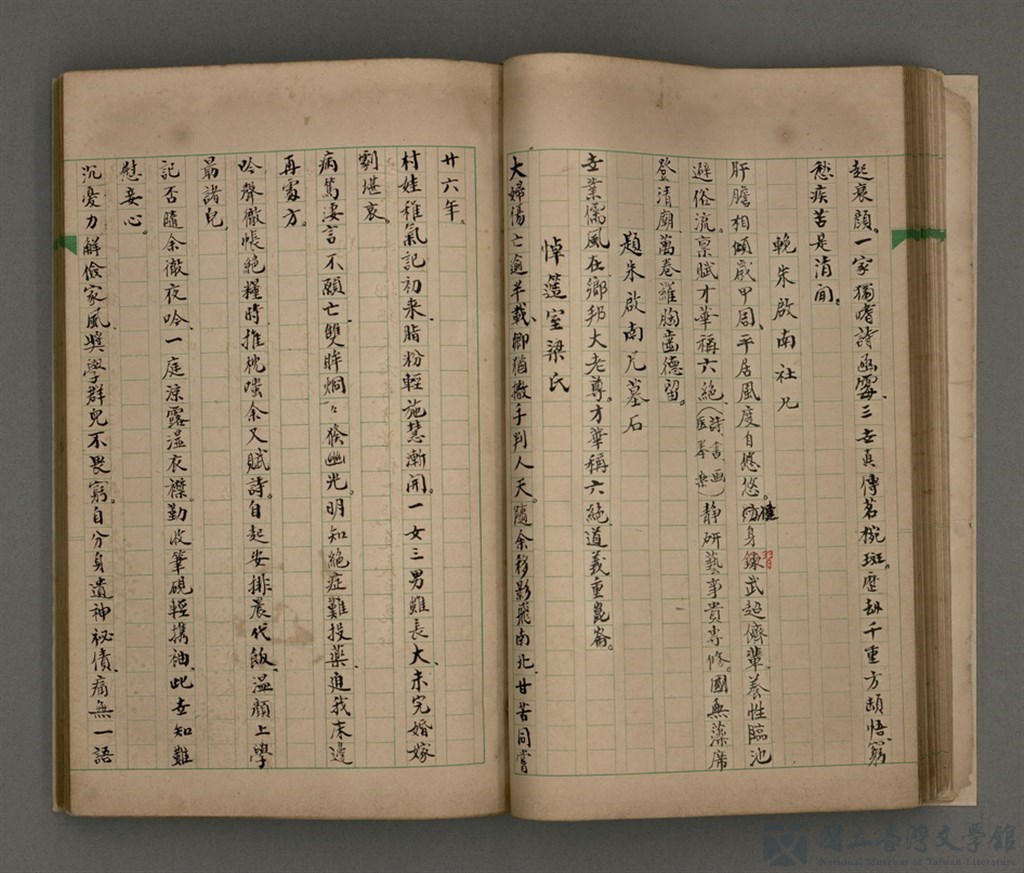 起衰顏。一家獨嗜詩函霉、三世真傳茗椀斑。歷劫千重方頓悟、窮
愁疾苦是清閒。
輓朱啟南社兄
肝膽相傾歲甲周、平居風度自悠悠。健身鍊習武超儕輩、養性臨池
避俗流。稟賦才華稱六絕、(詩、書、画、医、拳、樂)靜研藝事貴專修。國無藻席
登清廟、萬卷羅胸齒德留。
題朱啟南兄墓石
世業儒風在、鄉邦大老尊。才華稱六絕、道義重崑崙。
悼簉室梁氏
大婦傷亡逾半載、卿猶撒手判人天。隨余移影飛南北、甘苦同嘗
廿六年。
村娃稚氣記初來、脂粉輕施慧漸開。一女三男雖長大、未完婚嫁
劇堪哀、
病篤淒言不願亡、雙眸烱々發幽光。明知絕症難投藥、進我床邊
再覓方。
吟聲徹帳絕糧時、推枕嗤余又賦詩。自起安排晨代飯、溫顏上學
最諸兒、
記否隨余徹夜吟、一庭涼露溼衣襟。勤收筆硯輕携袖、此世知難
慰妾心。
沉憂力解儉家風、獎學群兒不畏窮。自分身遺神祕債、痛無一語
國立臺灣文學館
National Museum of Taiwan Literature